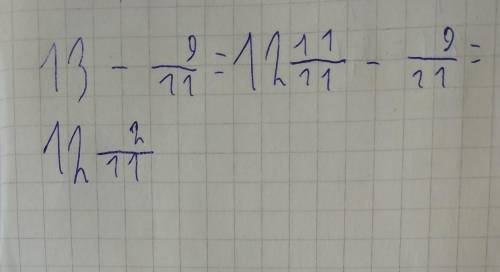 13 - 9/11 = 12 11/11 - 9/11 =
12 2/11